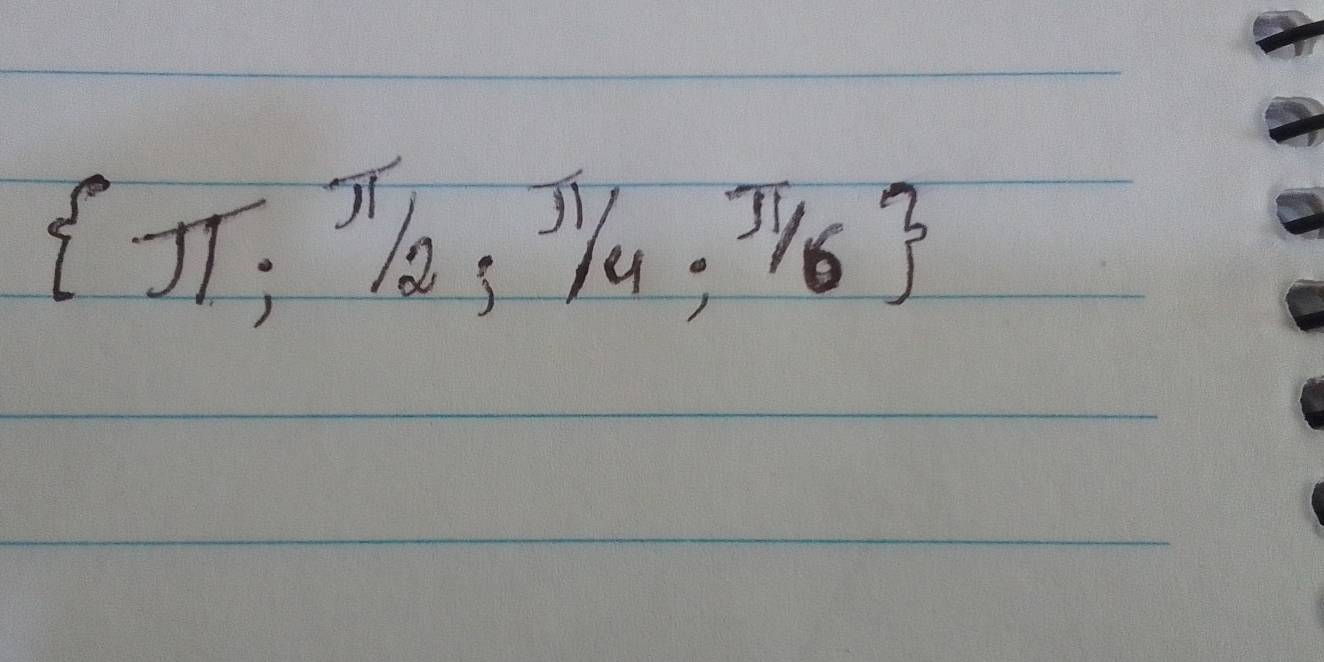 {π; π/2; π/4; π/6}